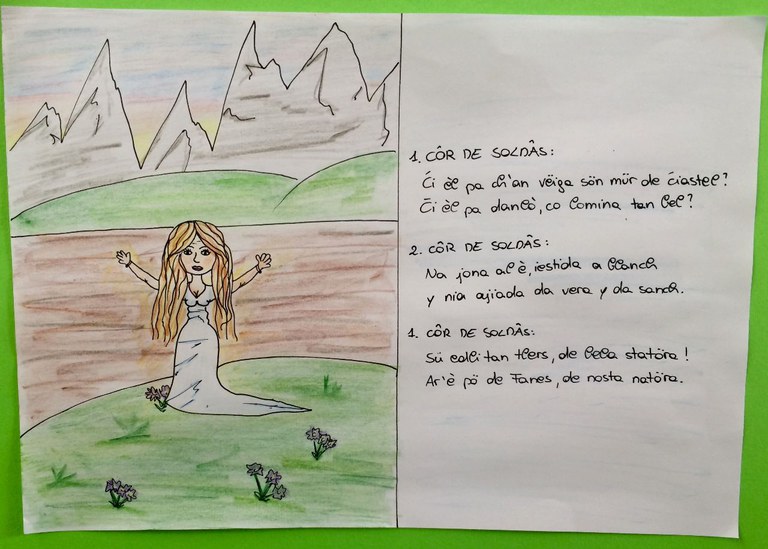 1. CÔR DE SOLDÂS:
Ći él pa ch'an vëiga sön mür de ćiastel?
Ći él pa danlò, co lomina tan bel?
2. CÔR DE SOLDÂS:
Na jona al è, iestida a blanch
y nia ajiada da vera y da sanch.
1. CÔR DE SOLDÂS:
Sü edli tan tlers, de bela statöra!
Ar'è pö de Fanes, de nosta natöra.